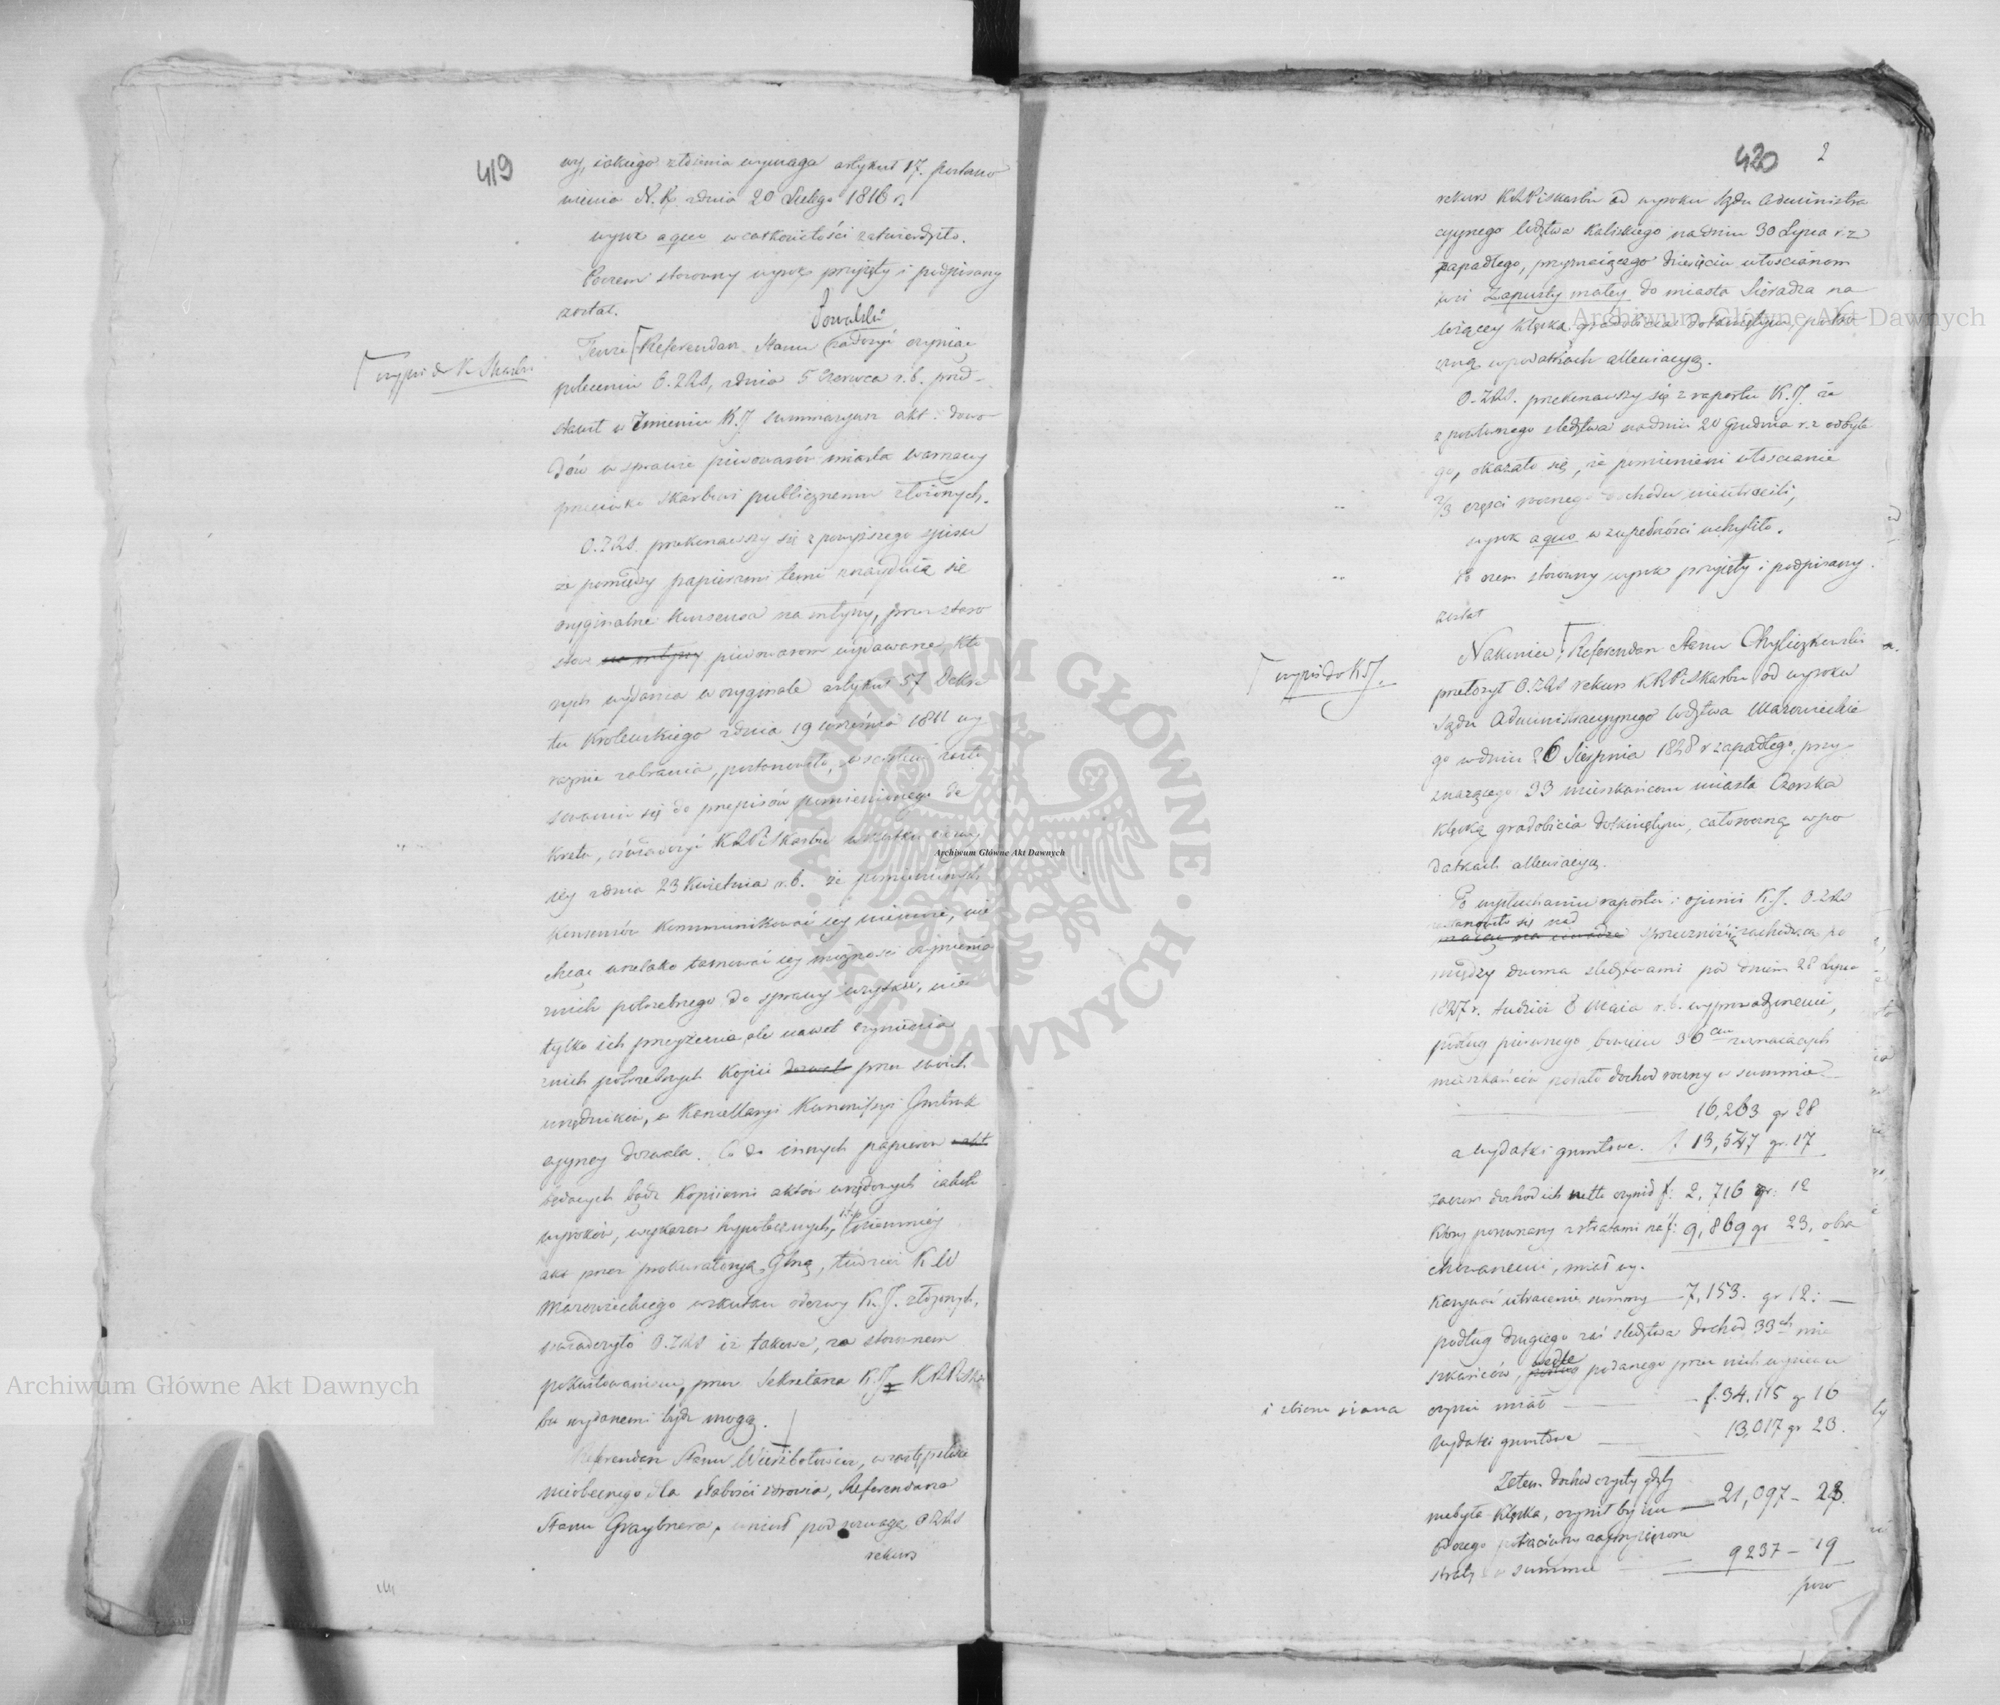 419
wy, iakiego złożenia wymaga artykuł 17. postano
wienia N. K. zdnia 20 Lutego 1816 r.
wyrok a quo w całkowitości zatwierdziło.
Poczem stosowny wyrok przyjęty i podpisany
został.
wypis do K Skarbu
Tenże Referendarz Stanu czyniąc
poleceniu O.ZRS, zdnia 5 Czerwca r.b. przed-
stawił w Imieniu K.J summaryusz akt: dowo
dów w sprawie piwowarów miasta Warszawy
przeciwko skarbowi publicznemu złożonych.
O.ZRS. przekonawszy się z powyższego spisu
że pomiędzy papierami temi znayduią się
oryginalne konsensa na młyny, przez staro
stów na młyny piwowarom wydawane, któ
rych wydania w oryginale artykuł 57 Dekre
tu Królewskiego zdnia 19 Września 1811 wy
raźnie zabrania, postanowiło, w
sowaniu się do przepisów pomienionego De
kretu, oświadczyć KRPiSkarbu w skutku odezwy
iey zdnia 23 Kwietnia r.b. że pomienionych
konsensów kommunikować iey niemoże, nie
chcąc wszelako tamować iey możności czynienia
znich potrzebnego do sprawy użytku, nie
tylko ich przeyrzenia ale nawet czynienia
znich potrzebnych kopii dozwala przez swoich
urzędników, w Kancellaryi Kommissyi Instruk
cyyney dozwala. Co do innych papierów akt
będących bądź kopiiami aktów urzędowych iakoto
wyroków, wykazów hypotecznych, itp. niemniej
akt przez prokuratoryą Glną, tudzież K W
Mazowieckiego wskutku odezwy K.J. złożonych,
oświadczyło O.ZRS iż takowe, za stosownem
pokwitowaniem, przez Sekretarza K.J. KRPiSka
bu wydanemi bydź mogą.
Referendarz Stanu Wierzbołowicz, w zastępstwie
nieobecnego dla słabości zdrowia, Referendarza
Stanu Graybnera, wniósł pod uwagę O.ZRS
rekurs
420 2
rekurs KRPiSkarbu od wyroku Sądu Administra
cyynego Wdztwa Kaliskiego na dniu 30 Lipca r.z
zapadłego, przyznaiącego dziesięciu włościanom
wsi Zapusty małey do miasta Sieradza na
leżącey klęską gradobicia dotkniętym, poło
czną w podatkach allewiacyą.
O.ZRS. przekonawszy się z raportu K.J. że
z powtórnego śledztwa na dniu 20 Grudnia r.z odbyte
go, okazało się, że pomienieni włościanie
2/3 części rocznego dochodu nieutracili,
wyrok a quo w zupełności uchyliło.
Po czem stosowny wyrok przyjęty i podpisany
został
wypis do KJ.
Nakoniec Referendarz Stanu Chyliczkowski
przełożył O.ZRS rekurs KRPiSkarbu od wyroku
Sądu Administracyynego Wdztwa Mazowieckie
go w dniu 26 Sierpnia 1828 r zapadłego, przy
znaiącego 33 mieszkańcom miasta Czerska
klęską gradobicia dotkniętym, całoroczną w po
datkach allewiacyą.
Po wysłuchaniu raportu i opinii K.J. O.ZRS
zastanowiło się nad
sprzecznością zachodzącą po
między dwoma śledztwami pod dniem 28 Lipca
1827 r. tudzież 8 Maia r.b. wyprowadzonemi,
podług pierwszego bowiem 36ciu
mieszkańców podało dochód roczny w summie
16,263 gr 28
a wydatki gruntowe. f. 13,547 gr. 17
zaczem dochód ich netto czynił f: 2,716 gr: 12
który porównany z stratami na f: 9,869 gr 23, obra
chowanemi, miał wy.
kazywać utracenie summy — 7,153. gr 12: —
podług drugiego zaś śledztwa dochód 33ch mie
szkańców, podług wedle podanego przez nich wysiewu
i zbioru siana
czynić miał — f. 34,115 gr 16
Wydatki gruntowe — 13,017 gr 23.
Zatem dochód czysty gdyby
niebyła klęska, czynił by im — 21,097 – 23.
Od czego potrąciwszy
straty w summie — 9237 – 19
poró
Archiwum Główne Akt Dawnych
Archiwum Główne Akt Dawnych
Archiwum Główne Akt Dawnych
ARCHIWUM GŁÓWNE · AKT DAWNYCH ·